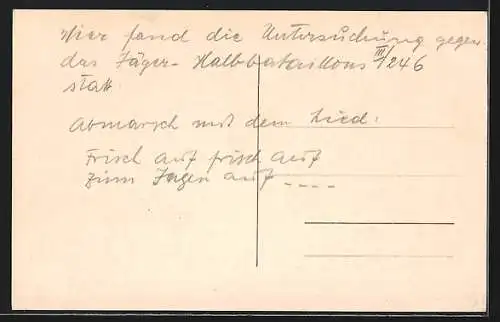 Hier fand die Untersuchung gegen
das Jäger-Halbbataillons III/246
statt
Abmarsch mit dem Lied:
Frisch auf frisch auf
zum Jagen auf ----